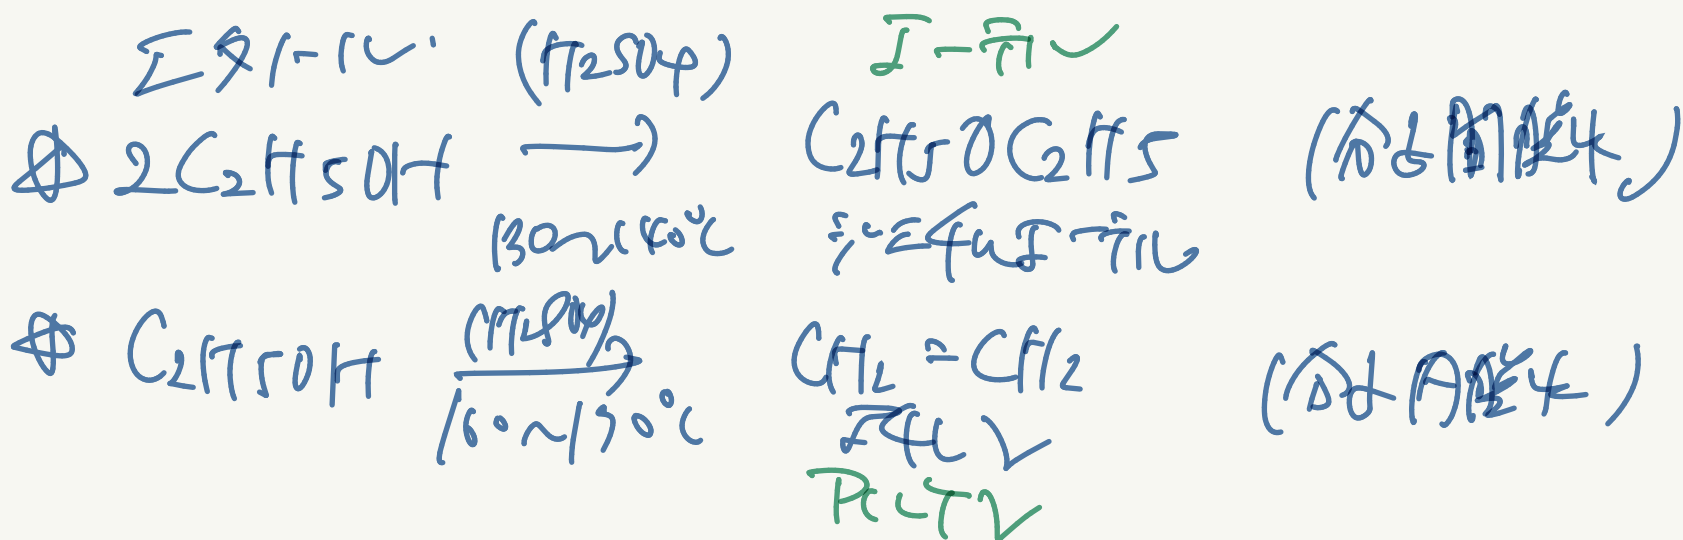 エタノール (H2SO4) エーテル
☆ 2C2H5OH → C2H5OC2H5 (分子間脱水)
130~140℃ ジエチルエーテル
☆ C2H5OH (H2SO4) → CH2=CH2 (分子内脱水)
160~170℃ エチレン
アルケン